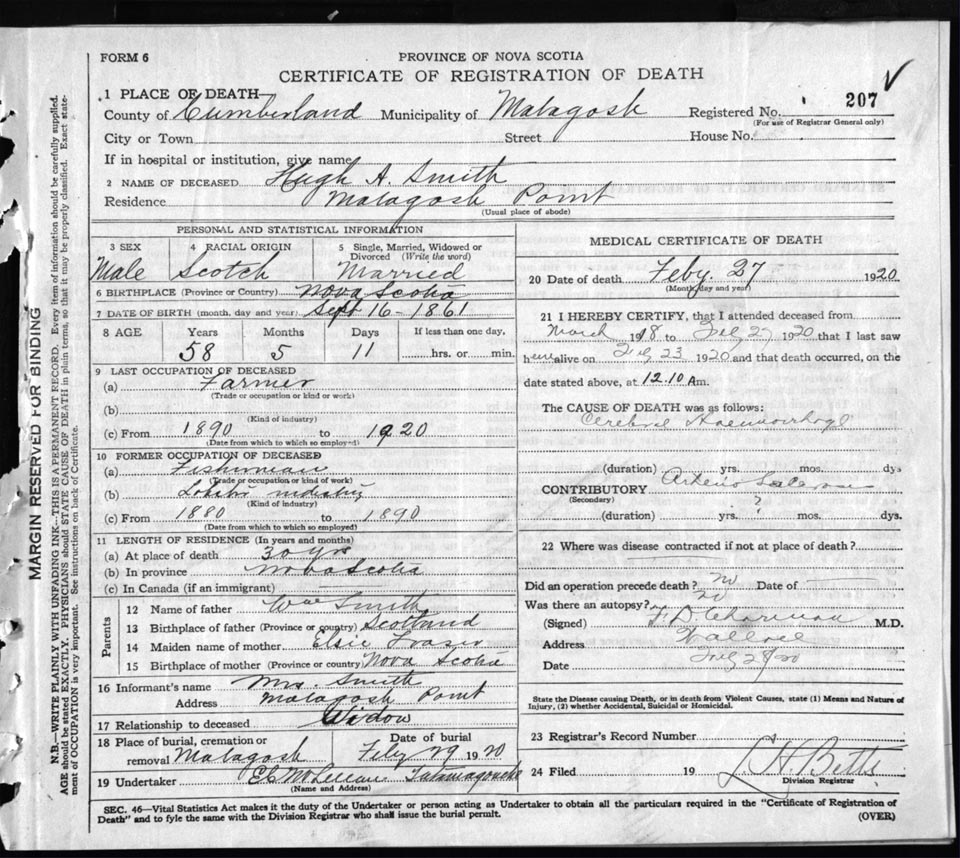 FORM 6
PROVINCE OF NOVA SCOTIA
CERTIFICATE OF REGISTRATION OF DEATH
207
1 PLACE OF DEATH
County of Cumberland Municipality of Malagash Registered No.
(For use of Registrar General only)
City or Town Street House No.
If in hospital or institution, give name
2 NAME OF DECEASED Hugh A. Smith
Residence Malagash Point
(Usual place of abode)
PERSONAL AND STATISTICAL INFORMATION
3 SEX 4 RACIAL ORIGIN 5 Single, Married, Widowed or Divorced (Write the word)
Male Scotch Married
6 BIRTHPLACE (Province or Country) Nova Scotia
7 DATE OF BIRTH (month, day and year) Sept 16 - 1861
8 AGE Years Months Days If less than one day.
58 5 11 hrs. or min.
9 LAST OCCUPATION OF DECEASED
(a) Farmer
(Trade or occupation or kind or work)
(b)
(Kind of industry)
(c) From 1890 to 1920
(Date from which to which so employed)
10 FORMER OCCUPATION OF DECEASED
(a) Fisherman
(Trade or occupation or kind of work)
(b) Lobster industry
(Kind of industry)
(c) From 1880 to 1890
(Date from which to which so employed)
11 LENGTH OF RESIDENCE (In years and months)
(a) At place of death 30 yrs
(b) In province Nova Scotia
(c) In Canada (if an immigrant)
Parents
12 Name of father Wm Smith
13 Birthplace of father (Province or country) Scotland
14 Maiden name of mother Elsie Fraser
15 Birthplace of mother (Province or country) Nova Scotia
16 Informant's name Mrs Smith
Address Malagash Point
17 Relationship to deceased Widow
18 Place of burial, cremation or removal Malagash Date of burial Feby 29 1920
19 Undertaker Tatamagouche
(Name and Address)
MEDICAL CERTIFICATE OF DEATH
20 Date of death Feby. 27 1920
(Month, day and year)
21 I HEREBY CERTIFY, that I attended deceased from
March 1918 to Feb 27 1920 that I last saw
h alive on Feby 23 1920 and that death occurred, on the
date stated above, at 12.10 Am.
The CAUSE OF DEATH was as follows:
Cerebral Haemorrhage
(duration) yrs. mos. dys
CONTRIBUTORY Arterio Sclerosis
(Secondary)
(duration) yrs. ? mos. dys.
22 Where was disease contracted if not at place of death?
Did an operation precede death? no Date of
Was there an autopsy? no
(Signed) M.D.
Address Wallace
Date
State the Disease causing Death, or in death from Violent Causes, state (1) Means and Nature of
Injury, (2) whether Accidental, Suicidal or Homicidal.
23 Registrar's Record Number
24 Filed 19 L. H. Betts
Division Registrar
SEC. 46—Vital Statistics Act makes it the duty of the Undertaker or person acting as Undertaker to obtain all the particulars required in the "Certificate of Registration of
Death" and to fyle the same with the Division Registrar who shall issue the burial permit.
(OVER)
MARGIN RESERVED FOR BINDING
N.B.—WRITE PLAINLY WITH UNFADING INK—THIS IS A PERMANENT RECORD. Every item of information should be carefully supplied.
AGE should be stated EXACTLY. PHYSICIANS should STATE CAUSE OF DEATH in plain terms, so that it may be properly classified. Exact state-
ment of OCCUPATION is very important. See instructions on back of Certificate.